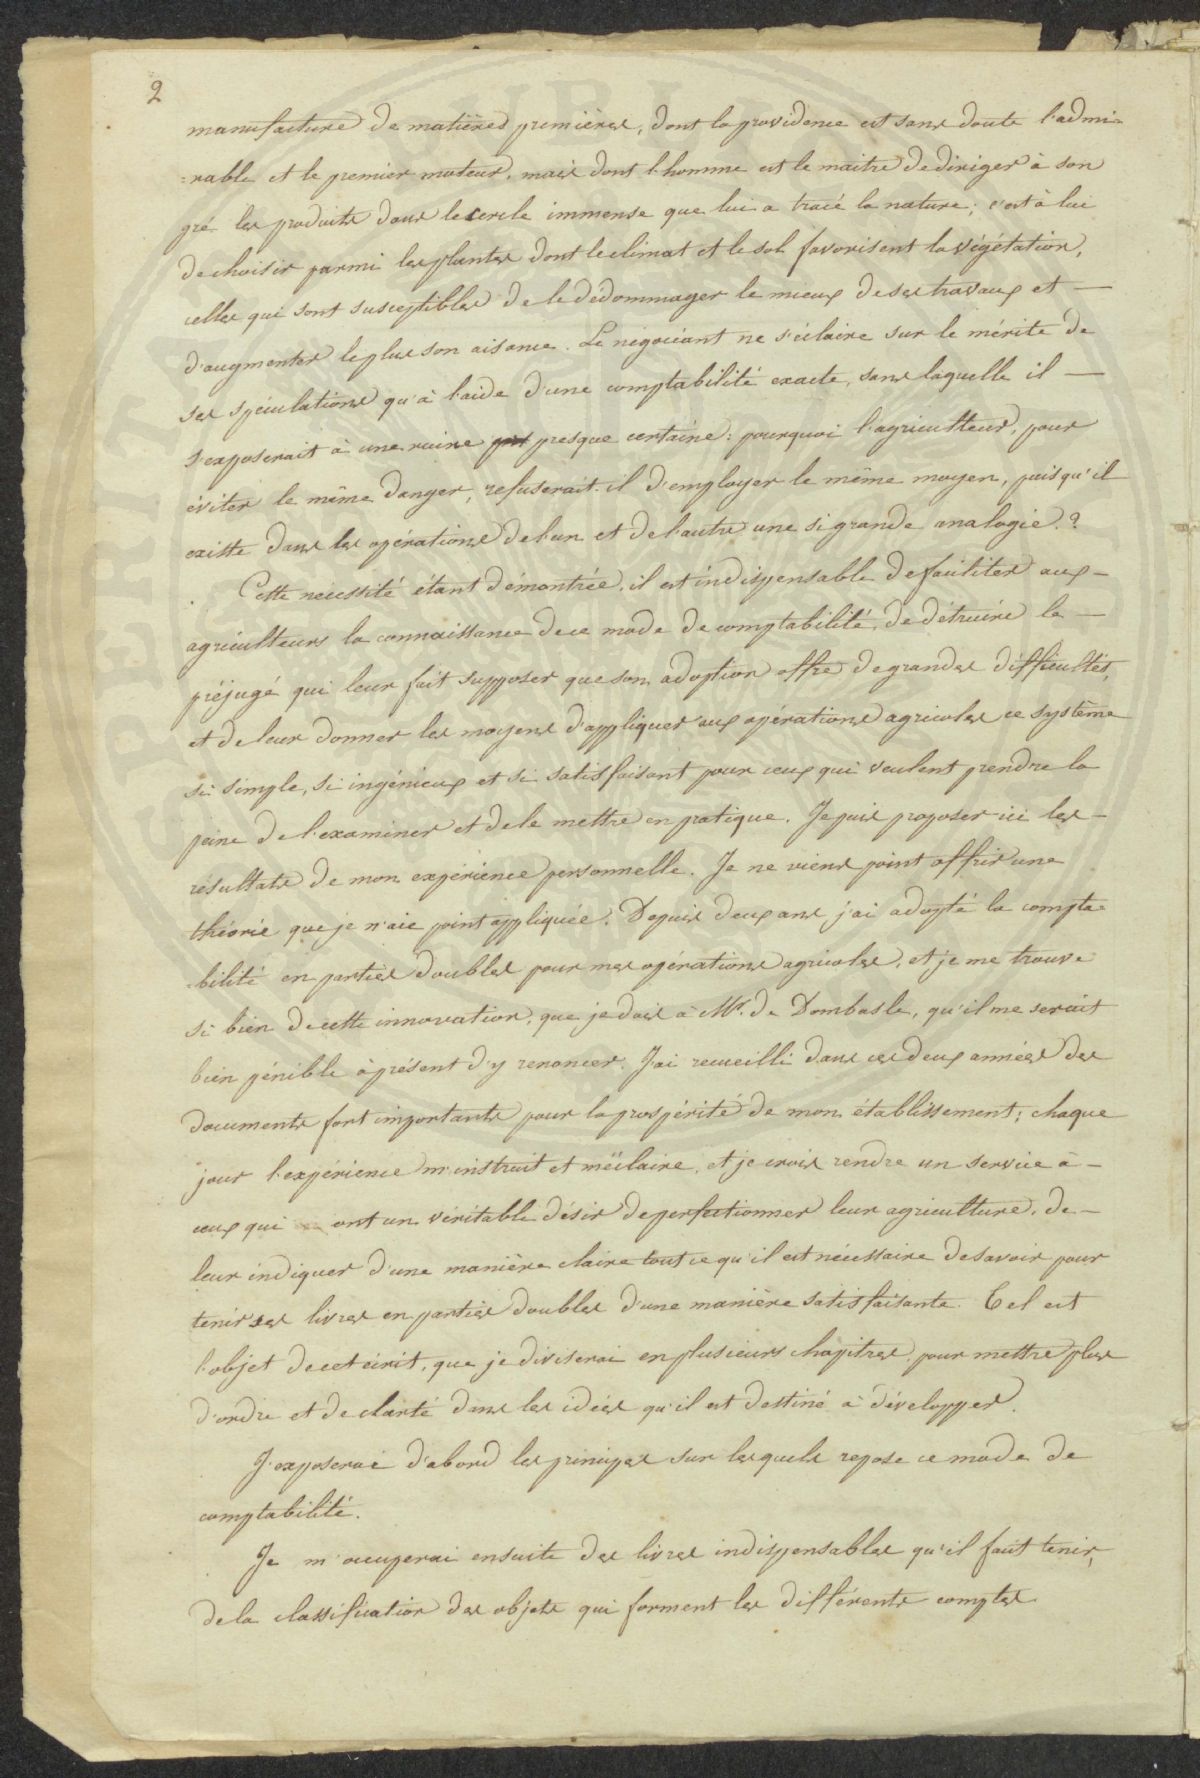 2
manufacture de matières premières, dont la providence est sans doute l'admi-
-rable et le premier moteur, mais dont l'homme est le maitre de diriger à son
gré les produits dans le cercle immense que lui a tracé la nature; c'est à lui
de choisir parmi les plantes dont le climat et le sol favorisent la végétation,
celles qui sont susceptibles de le dédommager le mieux de ses travaux et —
d'augmenter le plus son aisance. Le négociant ne s'éclaire sur le mérite de
ses spéculations qu'à l'aide d'une comptabilité exacte, sans laquelle il —
s'exposerait à une ruine presque certaine: pourquoi l'agriculteur, pour
éviter le même danger, refuserait-il d'employer le même moyen, puisqu'il
existe dans les opérations de l'un et de l'autre une si grande analogie.?
Cette nécessité étant démontrée, il est indispensable de faciliter aux —
agriculteurs la connaissance de ce mode de comptabilité, de détruire le —
préjugé qui leur fait supposer que son adoption offre de grandes difficultés,
et de leur donner les moyens d'appliquer aux opérations agricoles ce système
si simple, si ingénieux et si satisfaisant pour ceux qui veulent prendre la
peine de l'examiner et de le mettre en pratique. Je puis proposer ici les —
résultats de mon expérience personnelle. Je ne viens point offrir une
théorie que je n'aie point appliquée. Depuis deux ans, j'ai adopté la compta-
-bilité en parties doubles pour mes opérations agricoles, et je me trouve
si bien de cette innovation, que je dois à Mr. de Dombasle, qu'il me serait
bien pénible à présent d'y renoncer. J'ai recueilli dans ces deux années des
documents fort importants pour la prospérité de mon établissement; chaque
jour l'expérience m'instruit et m'éclaire, et je crois rendre un service à —
ceux qui ont un véritable désir de perfectionner leur agriculture, de —
leur indiquer d'une manière claire tout ce qu'il est nécessaire de savoir pour
tenir ses livres en parties doubles d'une manière satisfaisante. Tel est
l'objet de cet écrit, que je diviserai en plusieurs chapitres pour mettre plus
d'ordre et de clarté dans les idées qu'il est destiné à développer.
J'exposerai d'abord les principes sur lesquels repose ce mode de
comptabilité.
Je m'occuperai ensuite des livres indispensables qu'il faut tenir,
de la classification des objets qui forment les différents comptes